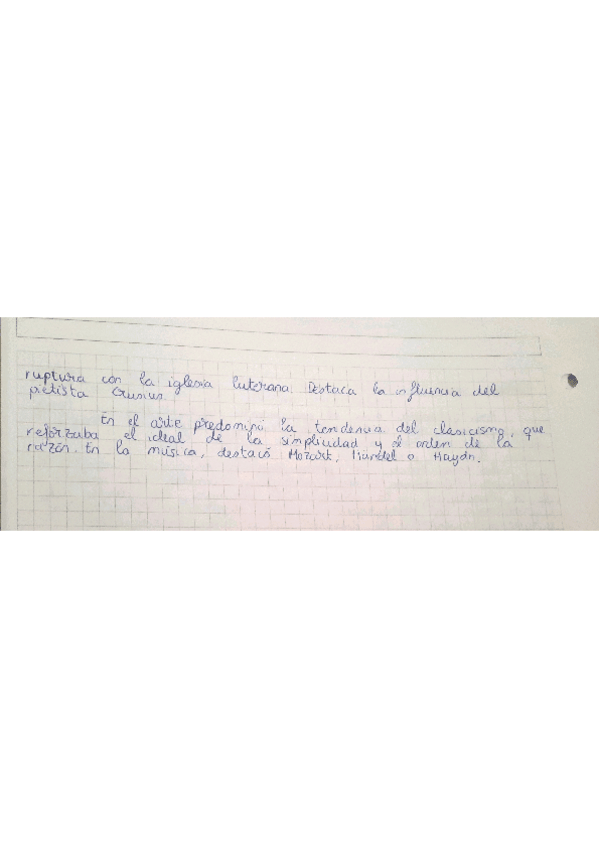 ruptura con la iglesia luterana. Destaca la influencia del
pietista Crusius.
En el arte predominó la tendencia del clasicismo, que
reforzaba el ideal de la simplicidad y el orden de la
razón. En la música, destacó Mozart, Händel o Haydn.